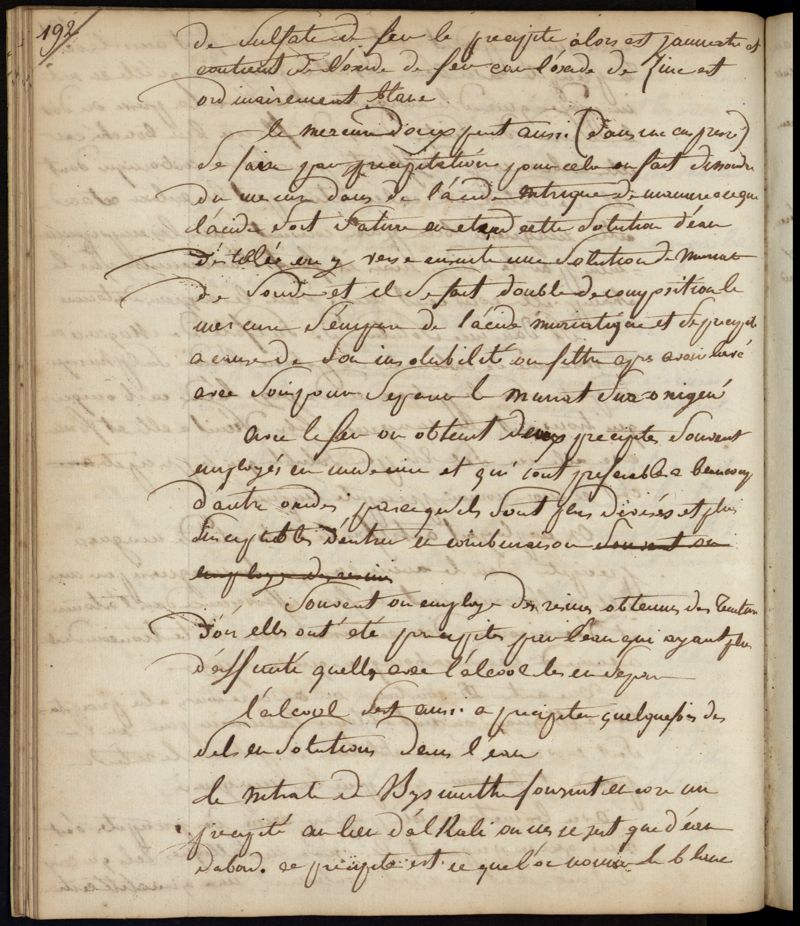 192
de Sulfate de fer le precipité alors est jaunatre et
contient de l'oxide de fer car l'oxide de Zinc est
ordinairement blanc.
le mercure doux peut aussi (dans un cas pressé)
Se faire par precipitation pour cela on fait dissoudre
du mercure dans de l'acide nitrique de maniere a ce que
l'acide soit Saturé on etend cette Solution d'eau
distillée on y verse ensuite une Solution de muriate
de Soude et il Se fait double decomposition le
mercure S'empare de l'acide muriatique et Se precipite
a cause de Son insolubilité on filtre apres avoir lavé
avec Soin pour Separer le muriat Sur-oxigené
avec le fer on obtient deux precipités Souvent
employés en medecine et qui sont preferables a beaucoup
d'autre oxides parcequ'ils Sont plus divisés et plus
Susceptibles d'entrer en combinaison Souvent on
employe des resines
Souvent on employe des resines obtenues des teintures
d'où elles ont été precipités par l'eau qui ayant plus
d'affinité quelles avec l'alcool les en Separe
l'alcool Sert aussi a precipiter quelquefois des
Sels en Solutions dans l'eau
le nitrate de Bysmuth fournit encore un
precipité au lieu d'alkali on ne se sert que d'eau
dabord. ce precipité est ce que l'on nomme le blanc